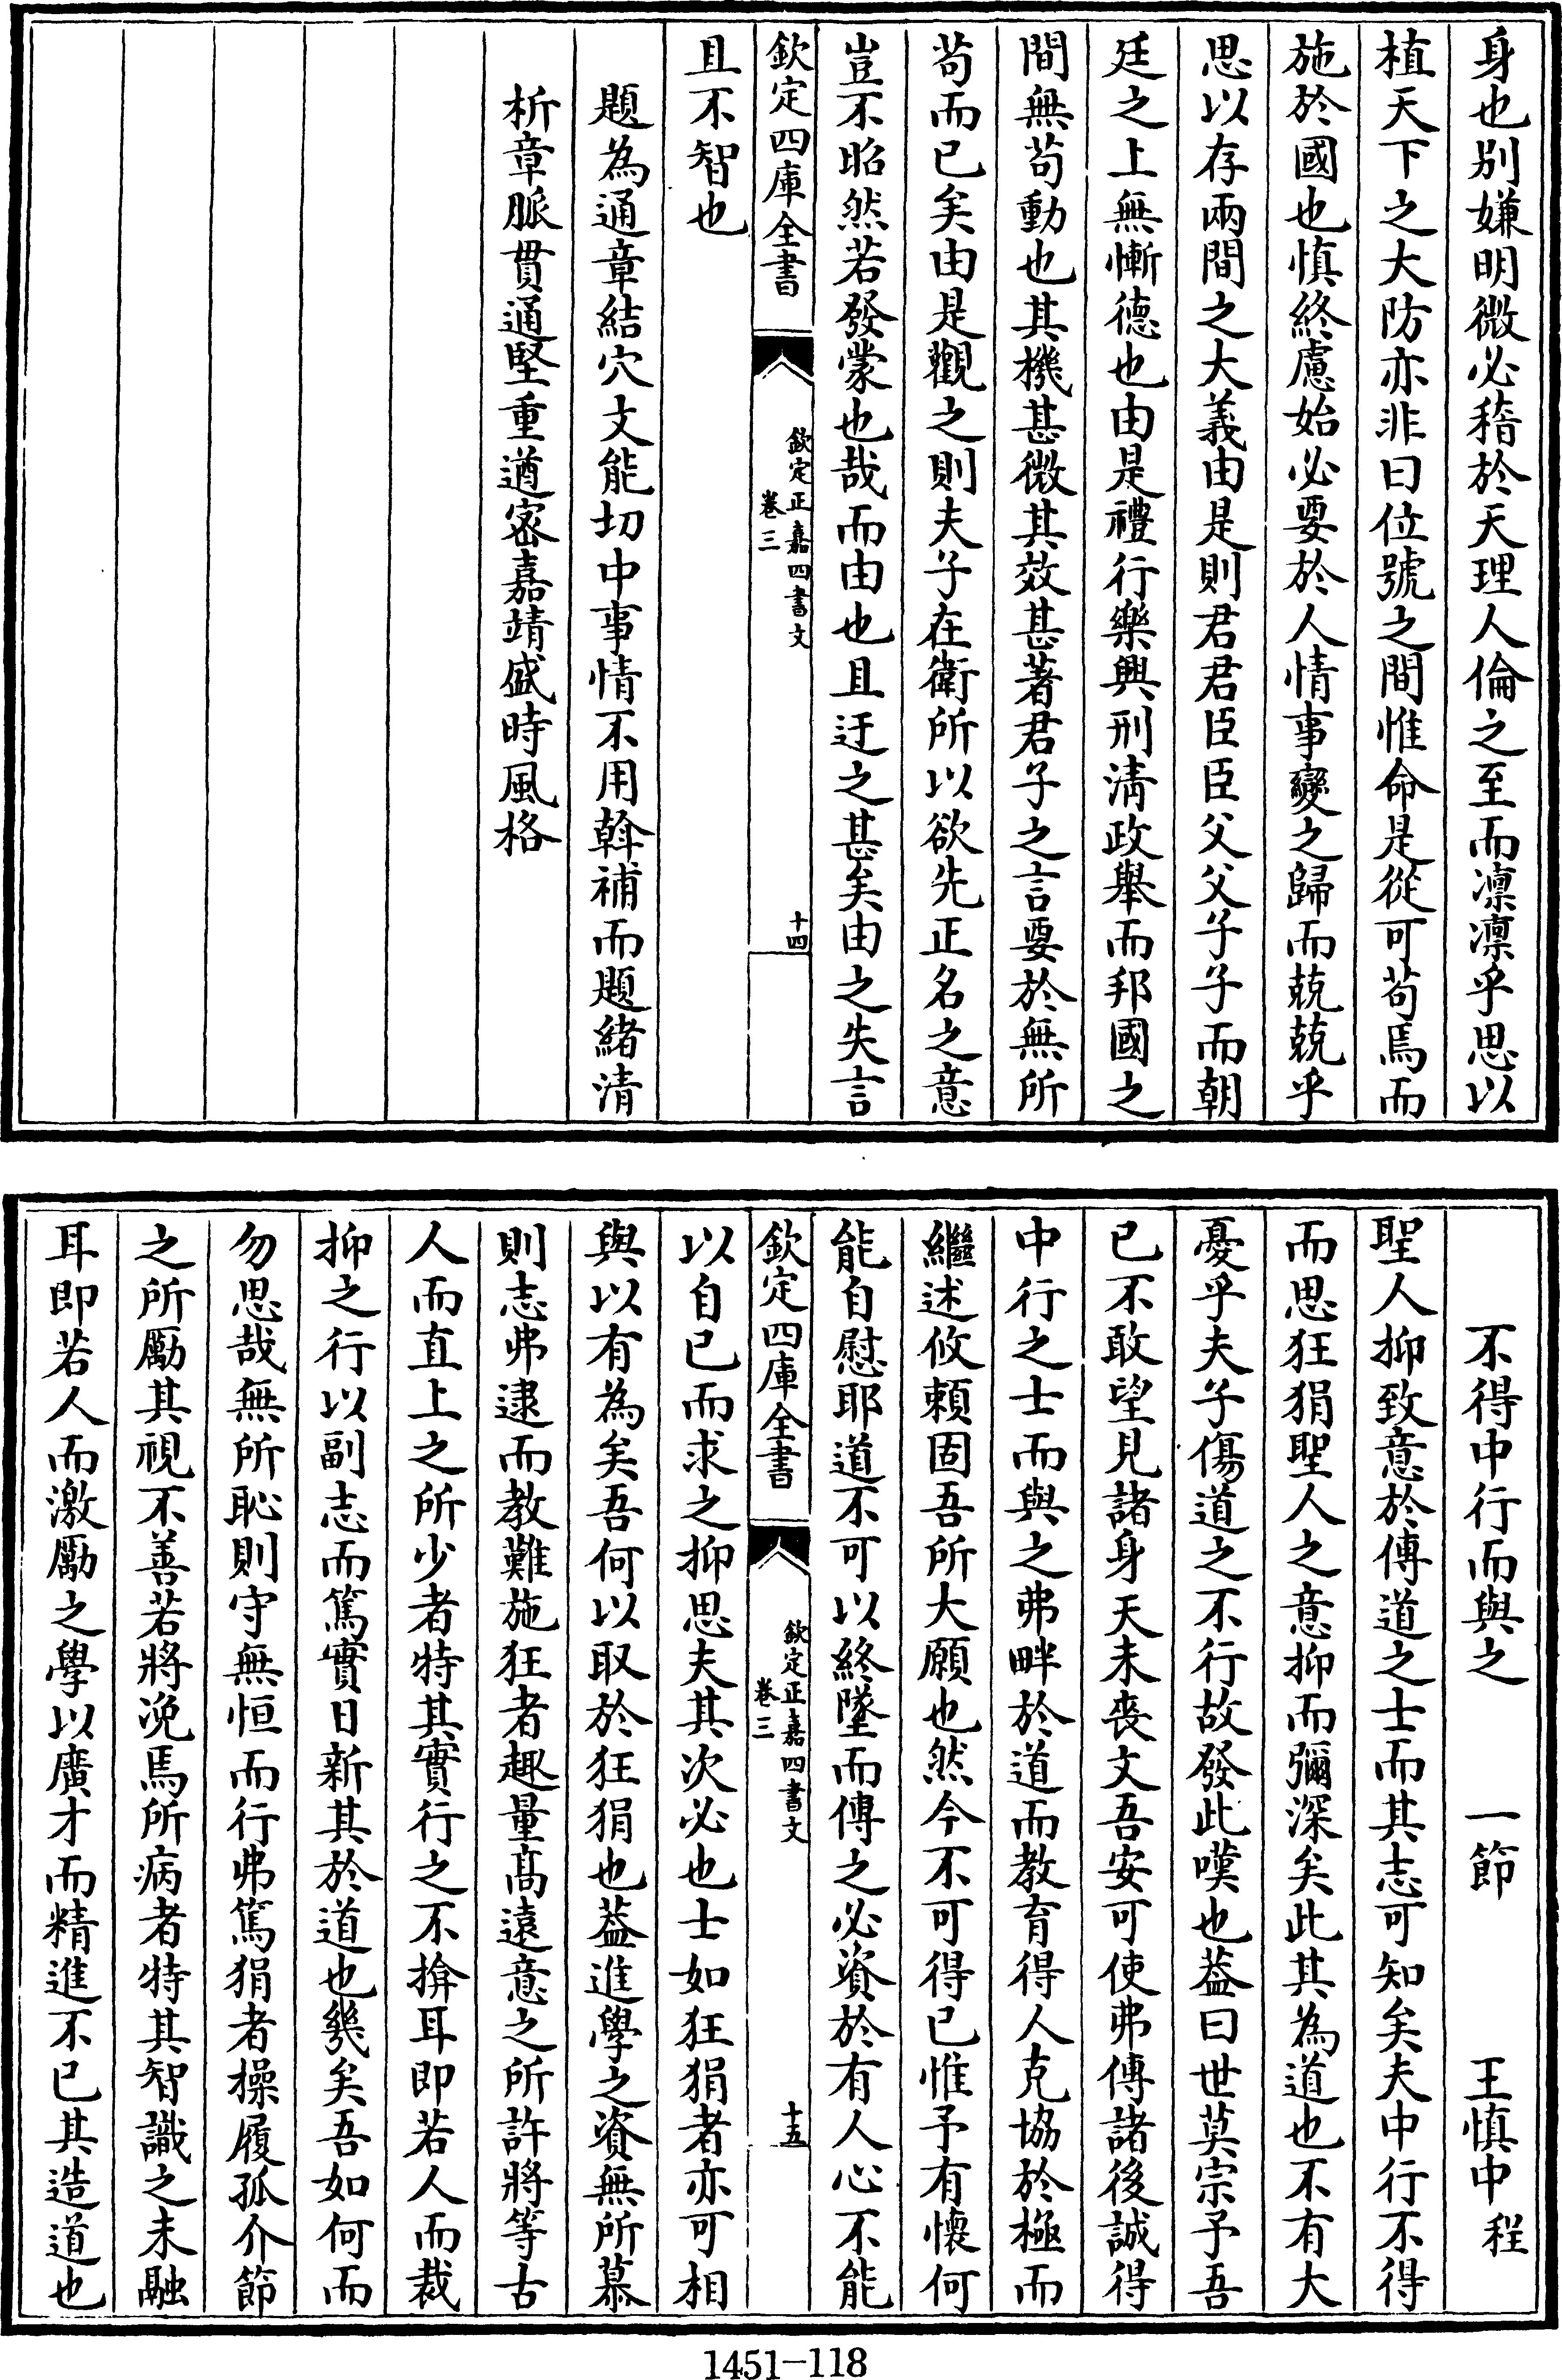 身也别嫌明微必稽於天理人倫之至而凛凛乎思以
植天下之大防亦非曰位號之間惟命是從可茍焉而
施於國也慎終慮始必要於人情事變之歸而兢兢乎
思以存兩間之大義由是則君君臣臣父父子子而朝
廷之上無慚德也由是禮行樂興刑清政舉而邦國之
間無茍動也其機甚微其效甚著君子之言要於無所
茍而已矣由是觀之則夫子在衛所以欲先正名之意
豈不昭然若發蒙也哉而由也且迂之甚矣由之失言
欽定四庫全書
欽定正嘉四書文
卷三
十四
且不智也
題為通章結穴文能切中事情不用斡補而題緒清
析章脈貫通堅重遒密嘉靖盛時風格
不得中行而與之 一節 王慎中 程
聖人抑致意於傳道之士而其志可知矣夫中行不得
而思狂狷聖人之意抑而彌深矣此其為道也不有大
憂乎夫子傷道之不行故發此嘆也葢曰世莫宗予吾
已不敢望見諸身天未喪文吾安可使弗傳諸後誠得
中行之士而與之弗畔於道而教育得人克協於極而
繼述攸頼固吾所大願也然今不可得已惟予有懷何
能自慰耶道不可以終墜而傳之必資於有人心不能
欽定四庫全書
欽定正嘉四書文
卷三
十五
以自已而求之抑思夫其次必也士如狂狷者亦可相
與以有為矣吾何以取於狂狷也葢進學之資無所慕
則志弗逮而教難施狂者趣量髙遠意之所許將等古
人而直上之所少者特其實行之不揜耳即若人而裁
抑之行以副志而篤實日新其於道也幾矣吾如何而
勿思哉無所恥則守無恒而行弗篤狷者操履孤介節
之所勵其視不善若將浼焉所病者特其智識之未融
耳即若人而激勵之學以廣才而精進不已其造道也
1451-118